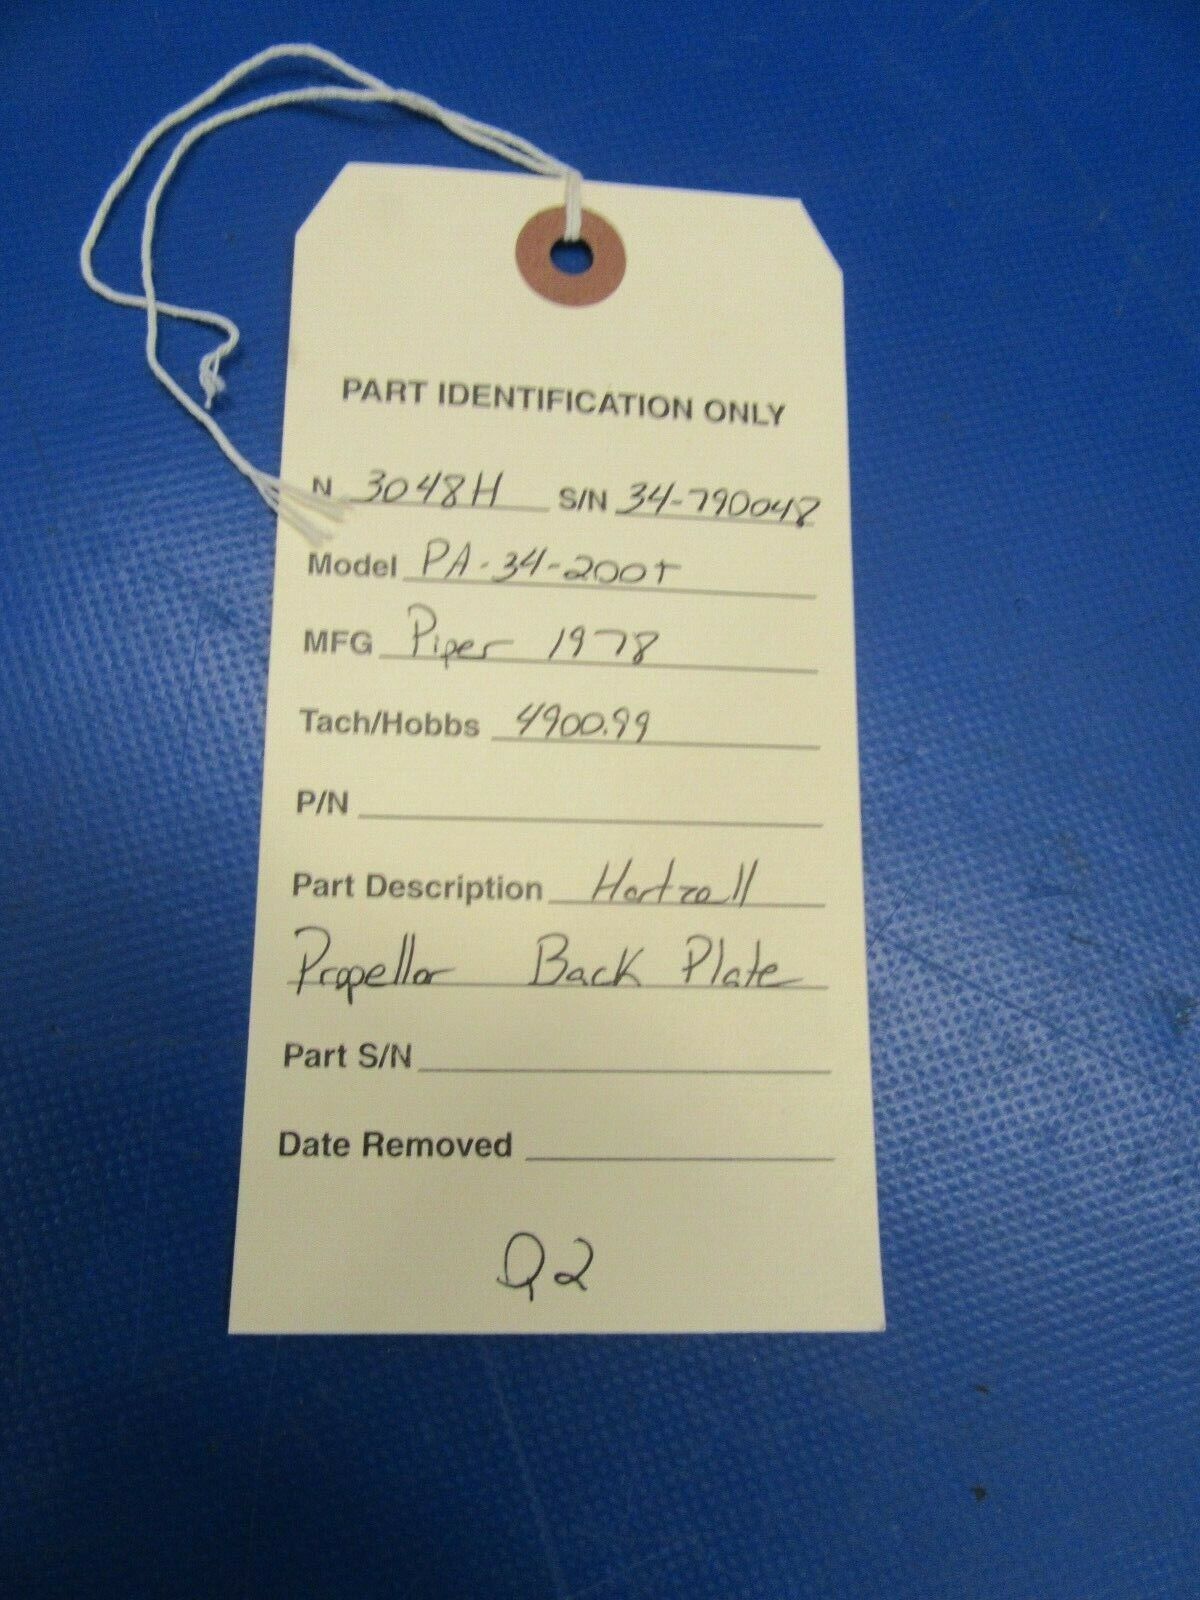 PART IDENTIFICATION ONLY
N 3048H S/N 34-790048
Model PA-34-200T
MFG Piper 1978
Tach/Hobbs 4900.99
P/N
Part Description Hartzell
Propellor Back Plate
Part S/N
Date Removed
Q2